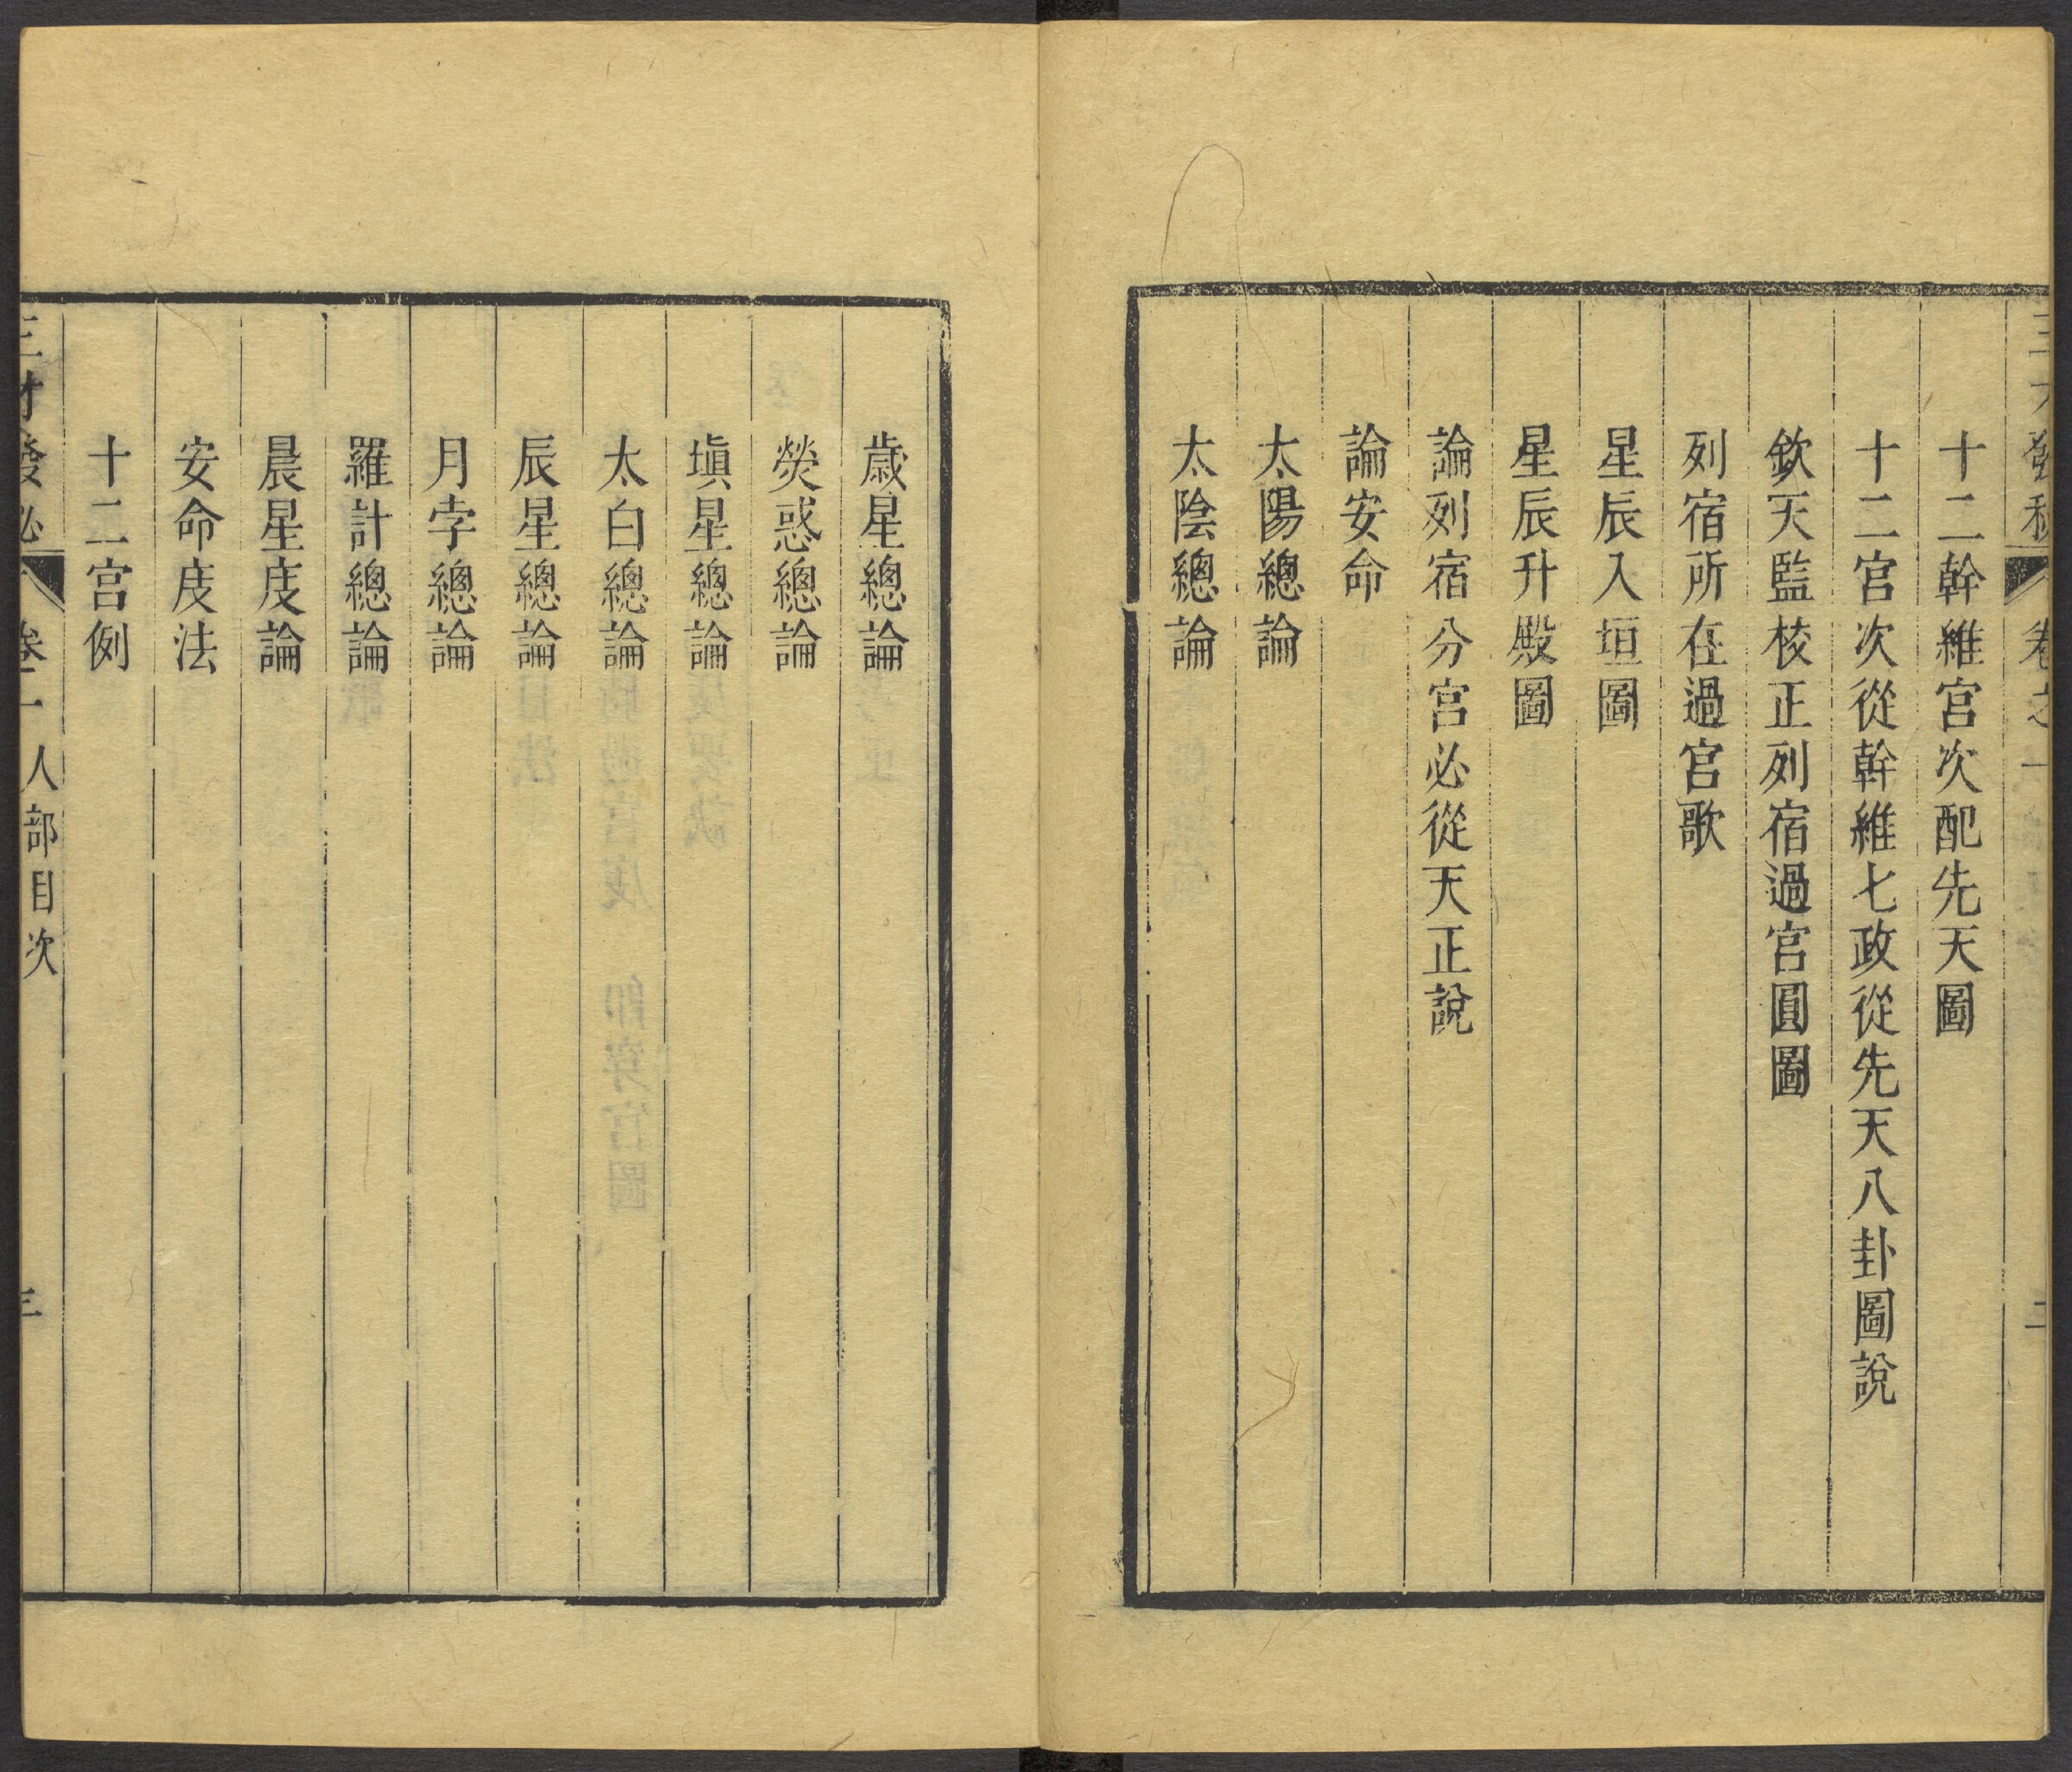 十二幹維宮次配先天圖
十二宮次從幹維七政從先天八卦圖說
欽天監校正列宿過宮圓圖
列宿所在過宮歌
星辰入垣圖
星辰升殿圖
論列宿分宮必從天正說
論安命
太陽總論
太陰總論
歲星總論
熒惑總論
塡星總論
太白總論
辰星總論
月孛總論
羅計總論
晨星度論
安命度法
十二宮例
三才發必 卷二 人部目次 三